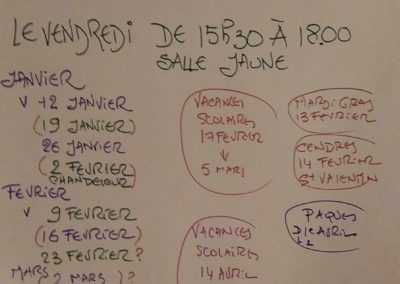 LE VENDREDI DE 15h30 À 18.00
SALLE JAUNE
JANVIER
V 12 JANVIER
(19 JANVIER)
26 JANVIER
(2 FEVRIER)
CHANDELEUR
FEVRIER
V 9 FEVRIER
(16 FEVRIER)
23 FEVRIER ?
MARS
(2 MARS) ?
VACANCES
SCOLAIRES
17 FEVRIER
↓
5 MARS
VACANCES
SCOLAIRES
14 AVRIL
MARDI GRAS
13 FEVRIER
CENDRES
14 FEVRIER
St VALENTIN
PAQUES
AVRIL